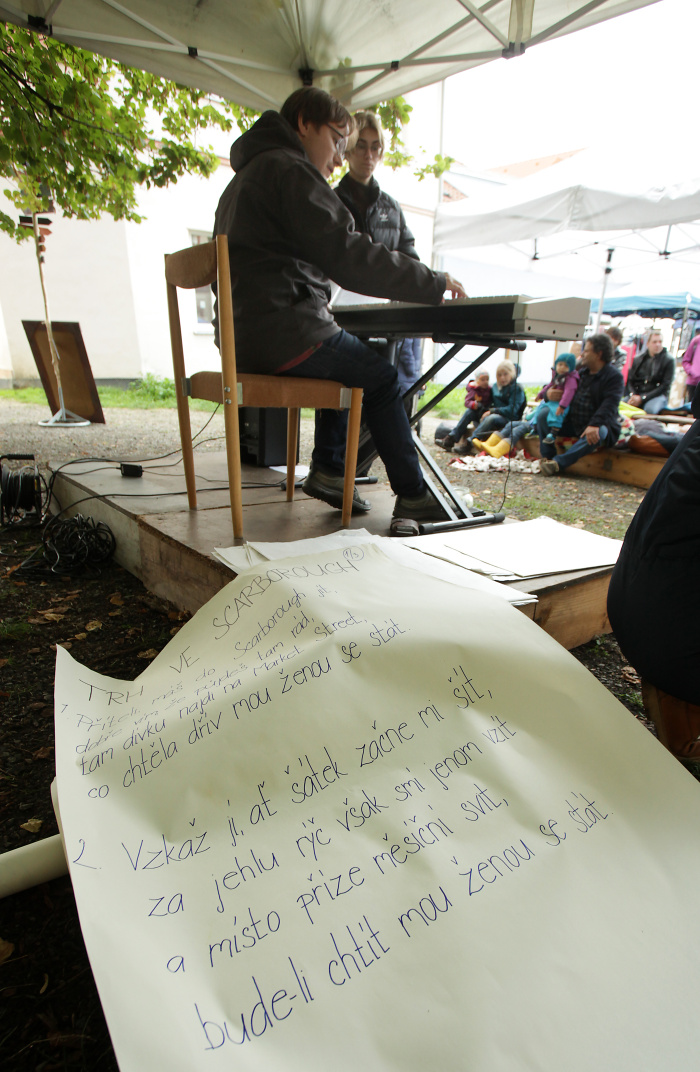 TRH VE SCARBOROUGH
1. Příteli, máš do Scarborough jít,
dobře vím že půjdeš tam rád,
tam dívku najdi na Market Street,
co chtěla dřív mou ženou se stát.
2. Vzkaž jí, ať šátek začne mi šít,
za jehlu rýč však smí jenom vzít
a místo příze měsíční svit,
bude-li chtít mou ženou se stát